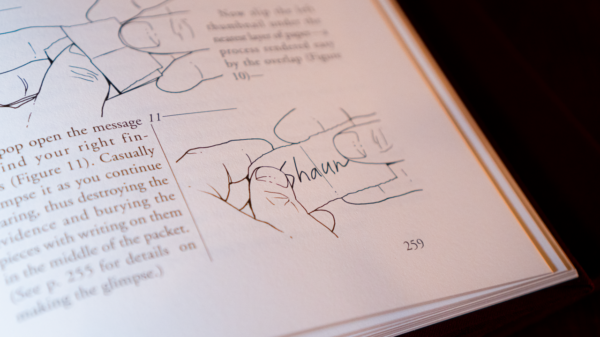 Now slip the left
thumbnail under the
nearest layer of paper—a
process rendered easy
by the overlap (Figure
10)—
pop open the message
ind your right fin-
s (Figure 11). Casually
mpse it as you continue
aring, thus destroying the
vidence and burying the
pieces with writing on them
in the middle of the packet.
(See p. 255 for details on
making the glimpse.)
11
Shaun
259